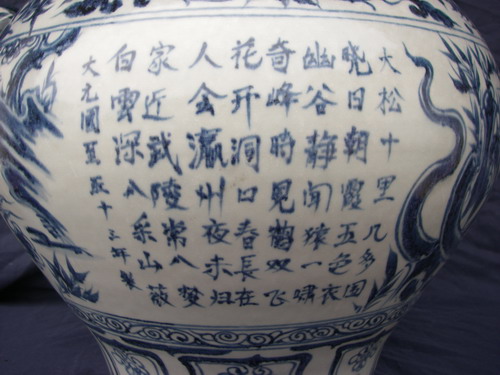 大松十里几多围
晓日朝霞五色衣
幽谷静闻猿一啸
奇峰時見鶴双飞
花开洞口春長在
人会瀛州夜未归
家近武陵常入夢
白雲深入乐山薇
大元國至十三年製